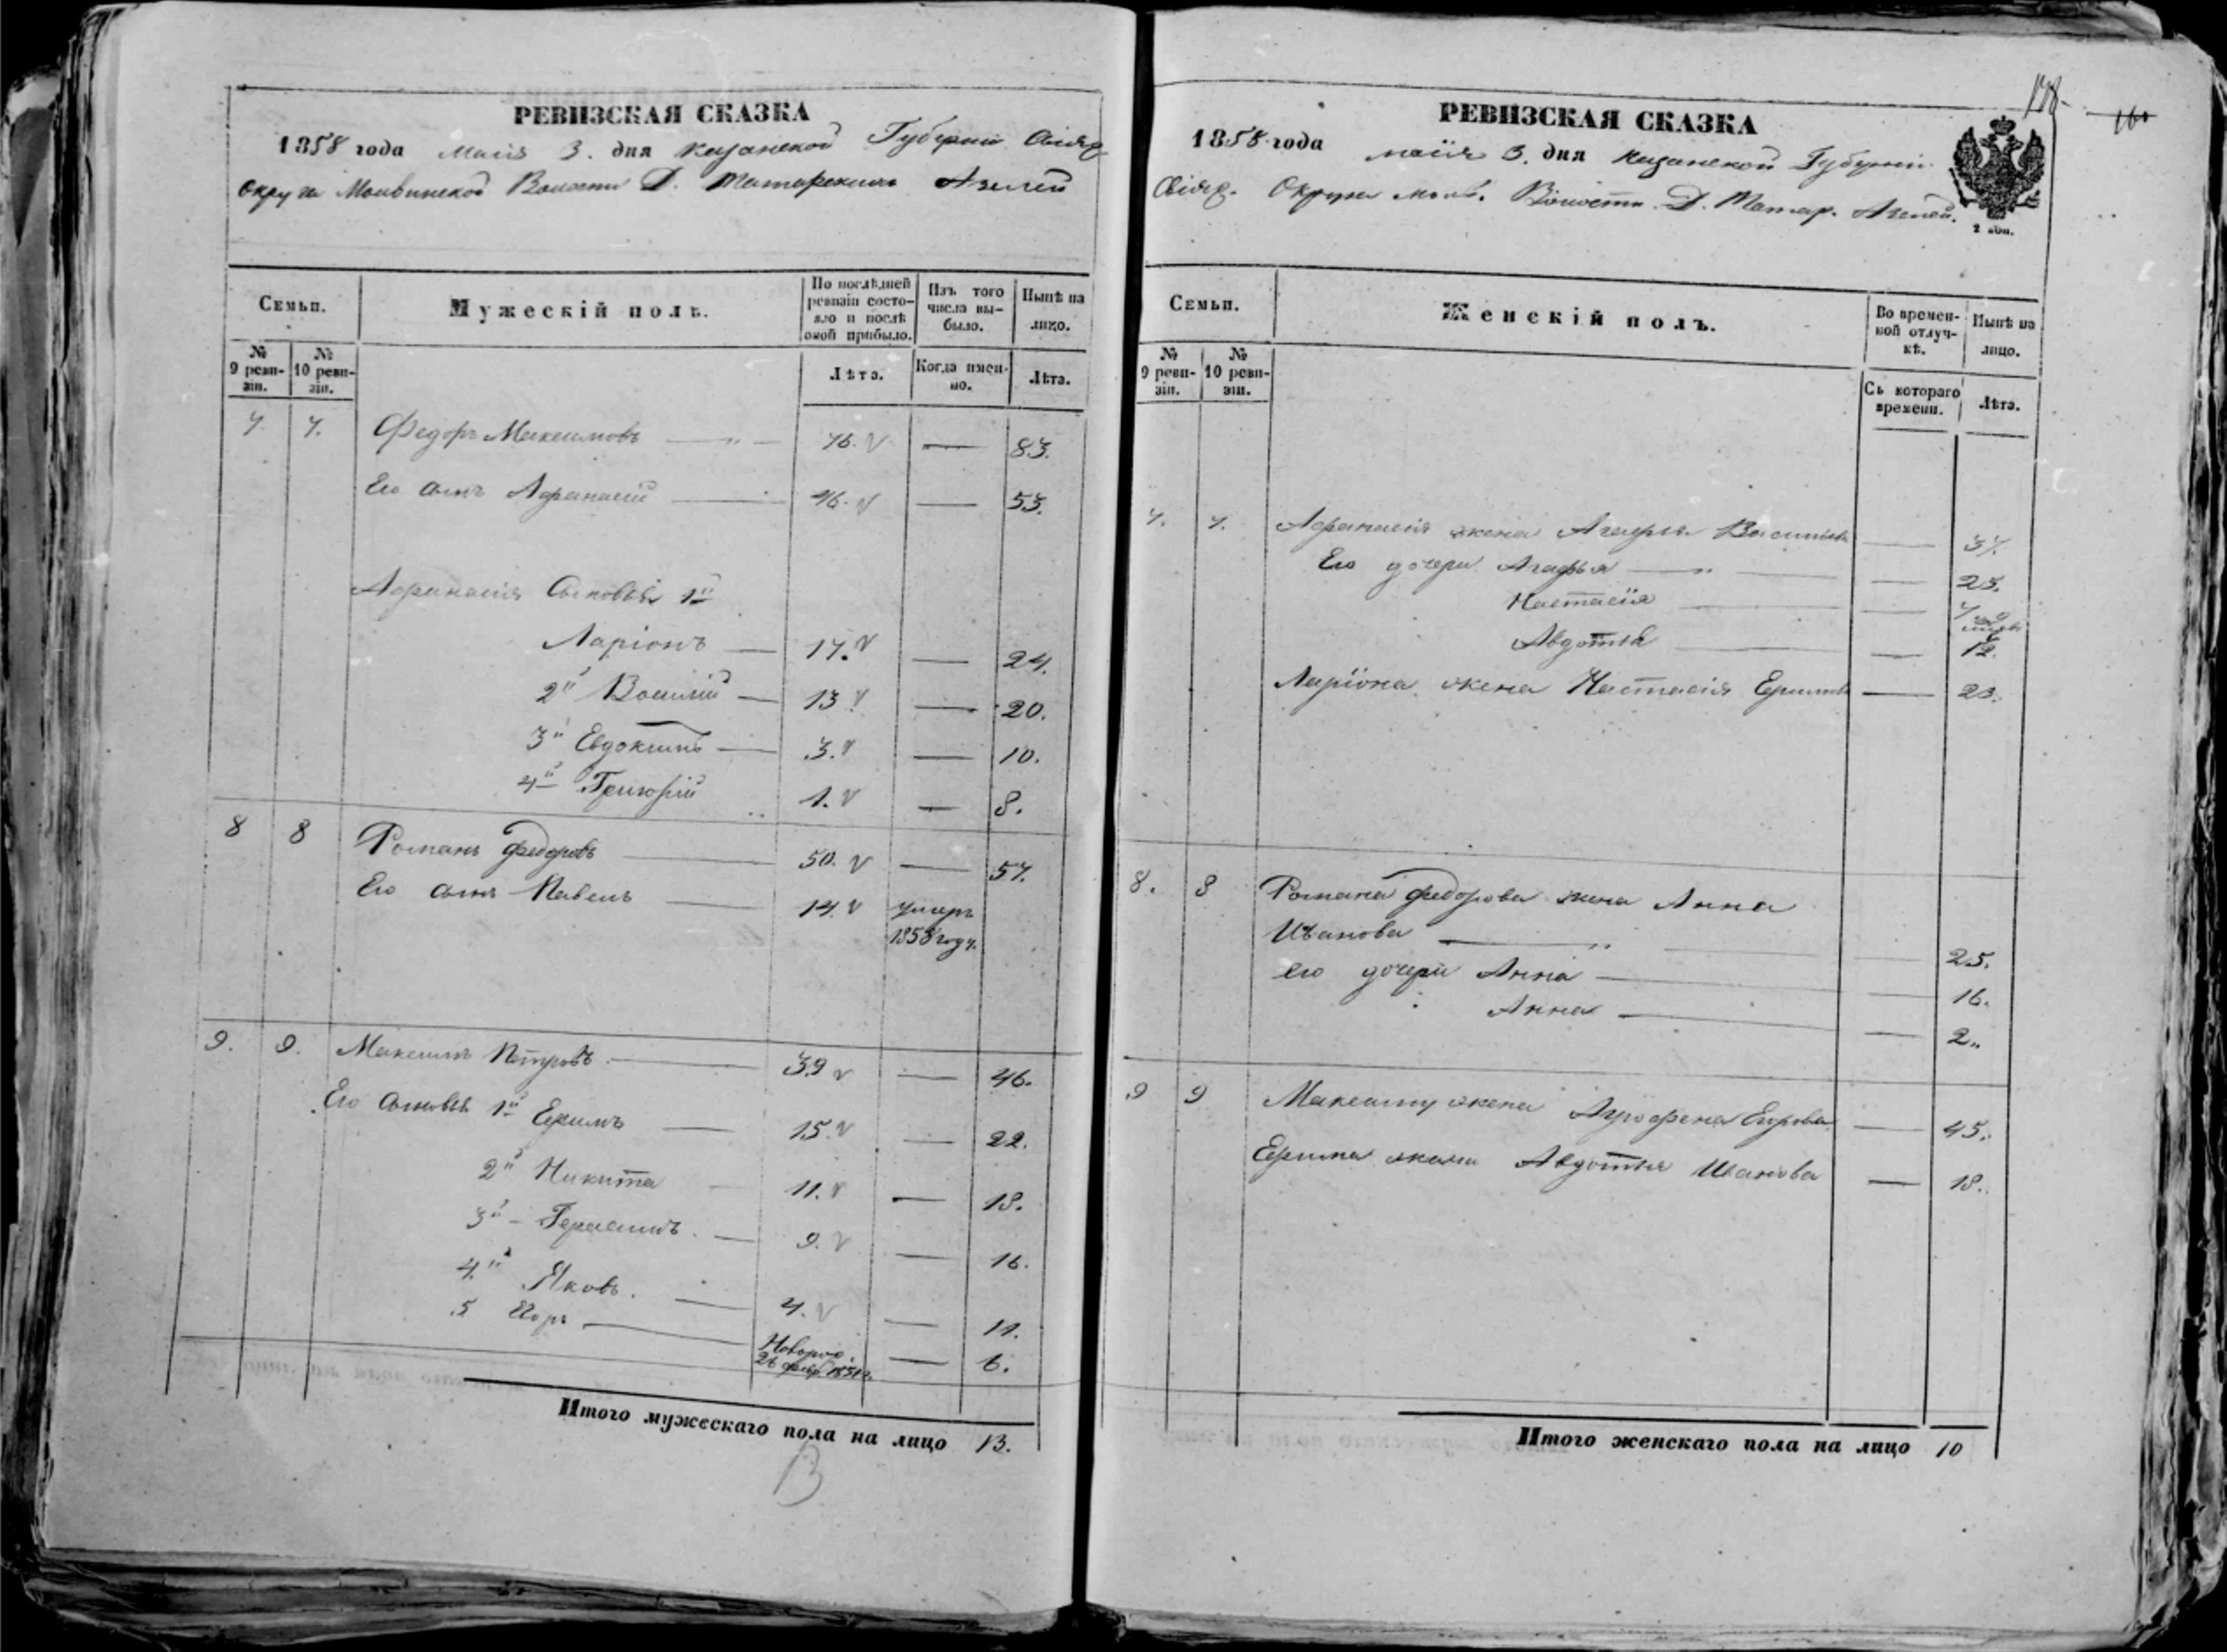 РЕВИЗСКАЯ СКАЗКА
1858 года маія 3. дня Казанской Губерніи Свіяж.
Округа Молвинской Волости Д. Татарскихъ Азелей
Семьи.
Мужескій полъ.
По послѣдней ревизіи состояло и послѣ оной прибыло.
Изъ того числа выбыло.
Нынѣ на лицо.
№ 9 ревизіи.
№ 10 ревизіи.
Лѣта.
Когда именно.
Лѣта.
7. 7. Федоръ Максимовъ — „ — 76. — 83.
Его сынъ Афанасій — 46. — 53.
Афанасія сыновья 1й
Ларіонъ — 17. — 24.
2й Василій — 13 — 20.
3й Евдокимъ — 3. — 10.
4й Григорій 1. — 8.
8 8 Романъ Федоровъ — 50. — 57.
Его сынъ Павелъ — 14. умеръ
1858 году.
9. 9. Максимъ Петровъ — 39 — 46.
Его сыновья 1й Ефимъ — 15. — 22.
2й Никита — 11. — 18.
3й Герасимъ. — 9. — 16.
4й Яковъ. — 4. — 11.
5 Егоръ — Новорож. — 6.
26 февр. 1851 г.
Итого мужескаго пола на лицо 13.
13
РЕВИЗСКАЯ СКАЗКА
178
160
1858 года маія 3. дня Казанской Губерніи
Свіяж. Округа Молв. Волости Д. Татар. Азелей.
Семьи.
Женскій полъ.
Во временной отлучкѣ.
Нынѣ на лицо.
№ 9 ревизіи.
№ 10 ревизіи.
Съ котораго времени.
Лѣта.
7. 7. Афанасія жена Агафья Васильева — 37.
Его дочери Агафья — „ — 23.
Настасія —
Авдотья — 12.
Ларіона жена Настасія Ефимова — 23.
8. 8 Романа Федорова жена Анна
Иванова — „ — 25.
Его дочери Анна — 16.
Анна — 2„
9 9 Максима жена Агрофена Егорова — 45.
Ефима жена Авдотья Иванова — 18.
Итого женскаго пола на лицо 10